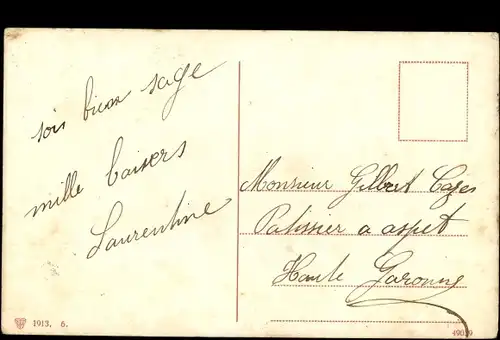 sois bien sage
mille baisers
Laurentine
Monsieur Gilbert Cazes
Patissier a aspet
Haute Garonne
1913. 6.
49029